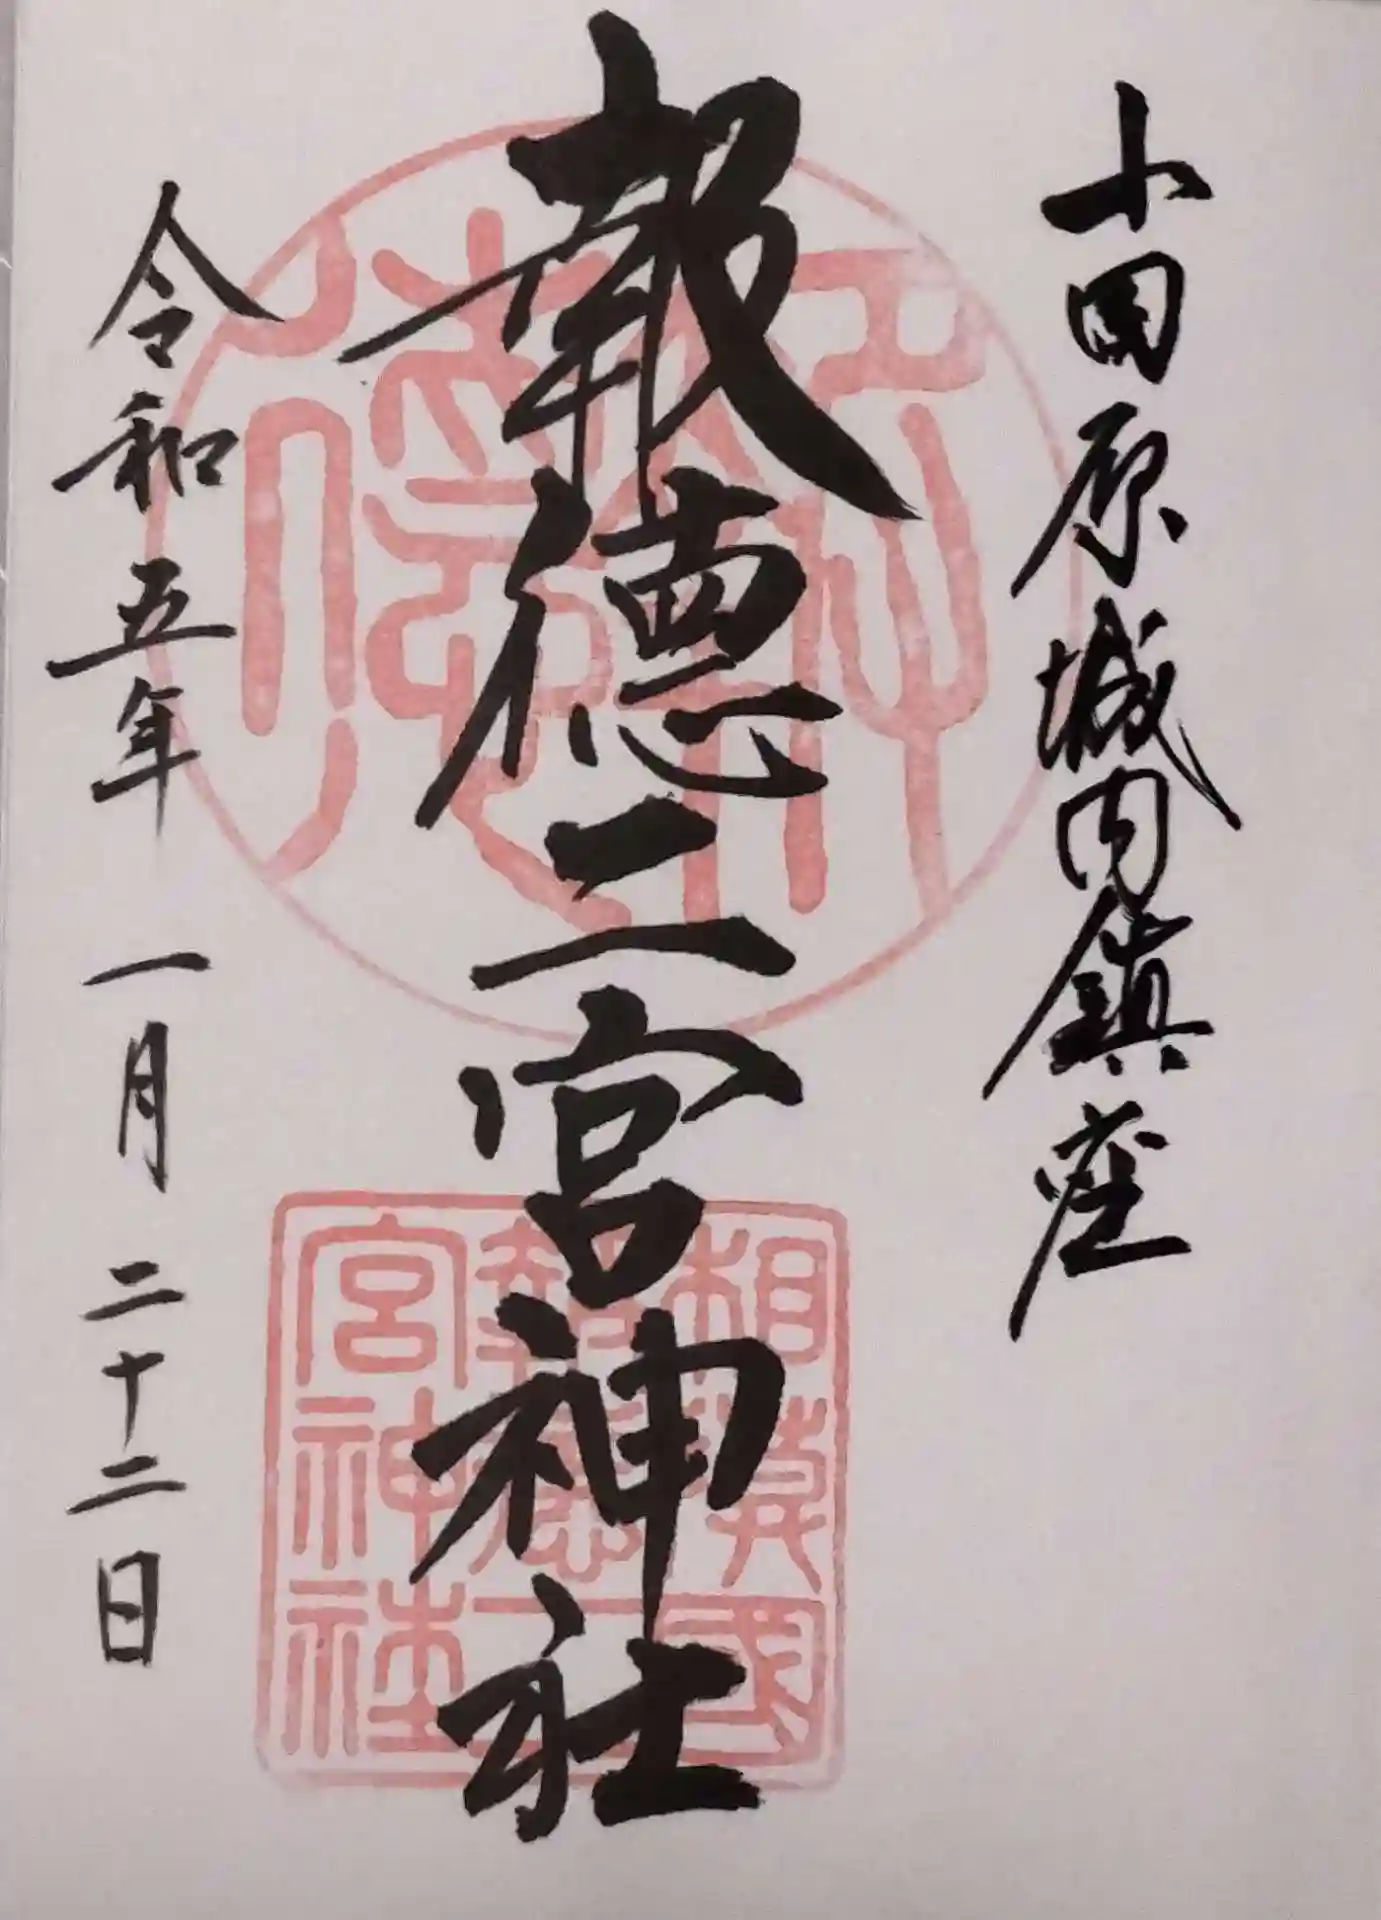 小田原城内鎮座
報徳二宮神社
令和五年 一月 二十二日
相模國
報徳二
宮神社